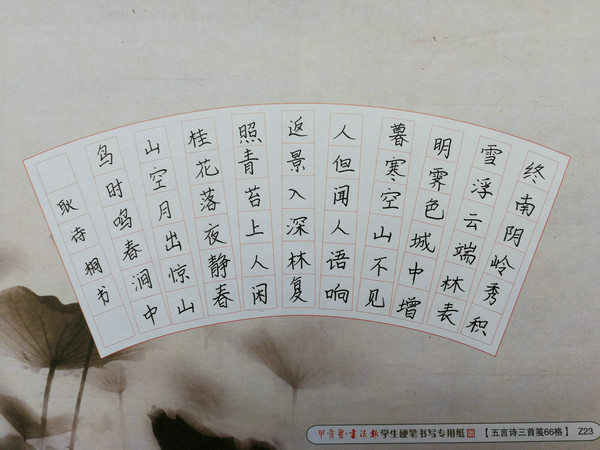 终南阴岭秀积
雪浮云端林表
明霁色城中增
暮寒空山不见
人但闻人语响
返景入深林复
照青苔上人闲
桂花落夜静春
山空月出惊山
鸟时鸣春涧中
耿诗桐书
书法报 学生硬笔书写专用纸 【五言诗三首笺66格】 Z23